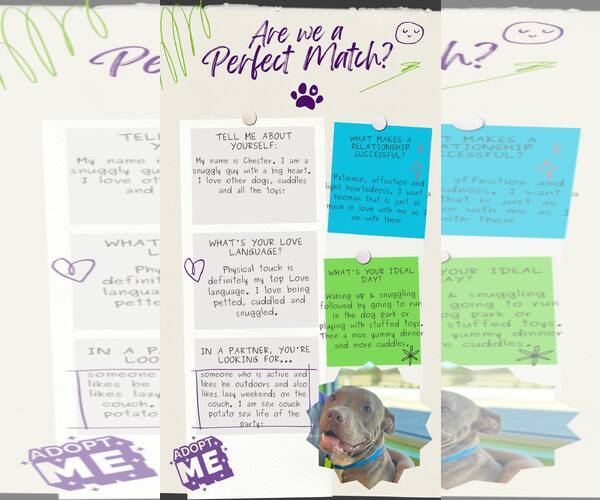 Are we a
Perfect Match?
TELL ME ABOUT
YOURSELF:
My name is Chester. I am a
snuggly guy with a big heart.
I love other dogs, cuddles
and all the toys!
WHAT MAKES A
RELATIONSHIP
SUCCESSFUL?
Patience, affection and
light heartedness. I want a
hooman that is just as
much in love with me as I
am with them
WHAT'S YOUR LOVE
LANGUAGE?
Physical touch is
definitely my top Love
language. I love being
petted, cuddled and
snuggled.
WHAT'S YOUR IDEAL
DAY?
Waking up & snuggling
followed by going to run
in the dog park or
playing with stuffed toys.
Then a nice yummy dinner
and more cuddles.
IN A PARTNER, YOU'RE
LOOKING FOR...
someone who is active and
likes be outdoors and also
likes lazy weekends on the
couch. I am 50% couch
potato 50% life of the
party!
ADOPT
ME